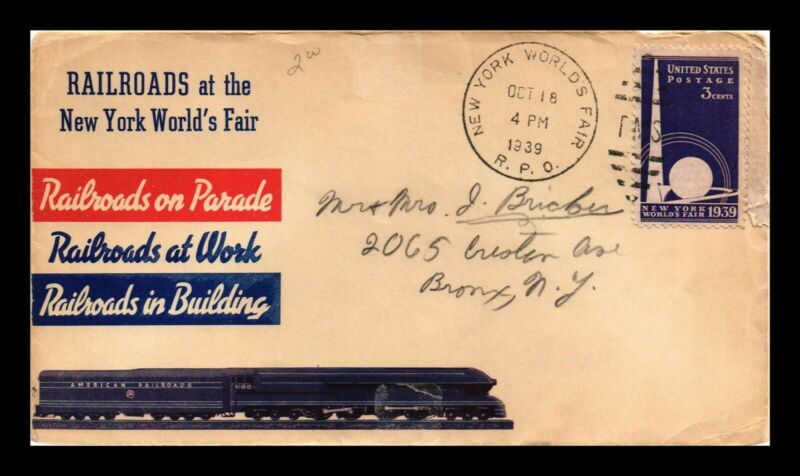 RAILROADS at the
New York World's Fair
Railroads on Parade
Railroads at Work
Railroads in Building
AMERICAN RAILROADS
6100
2.00
NEW YORK WORLD'S FAIR
OCT 18
4 PM
1939
R. P. O.
UNITED STATES
POSTAGE
3 CENTS
NEW YORK
WORLD'S FAIR 1939
Mr & Mrs. J. Bricker
2065 Creston Ave
Bronx, N.Y.